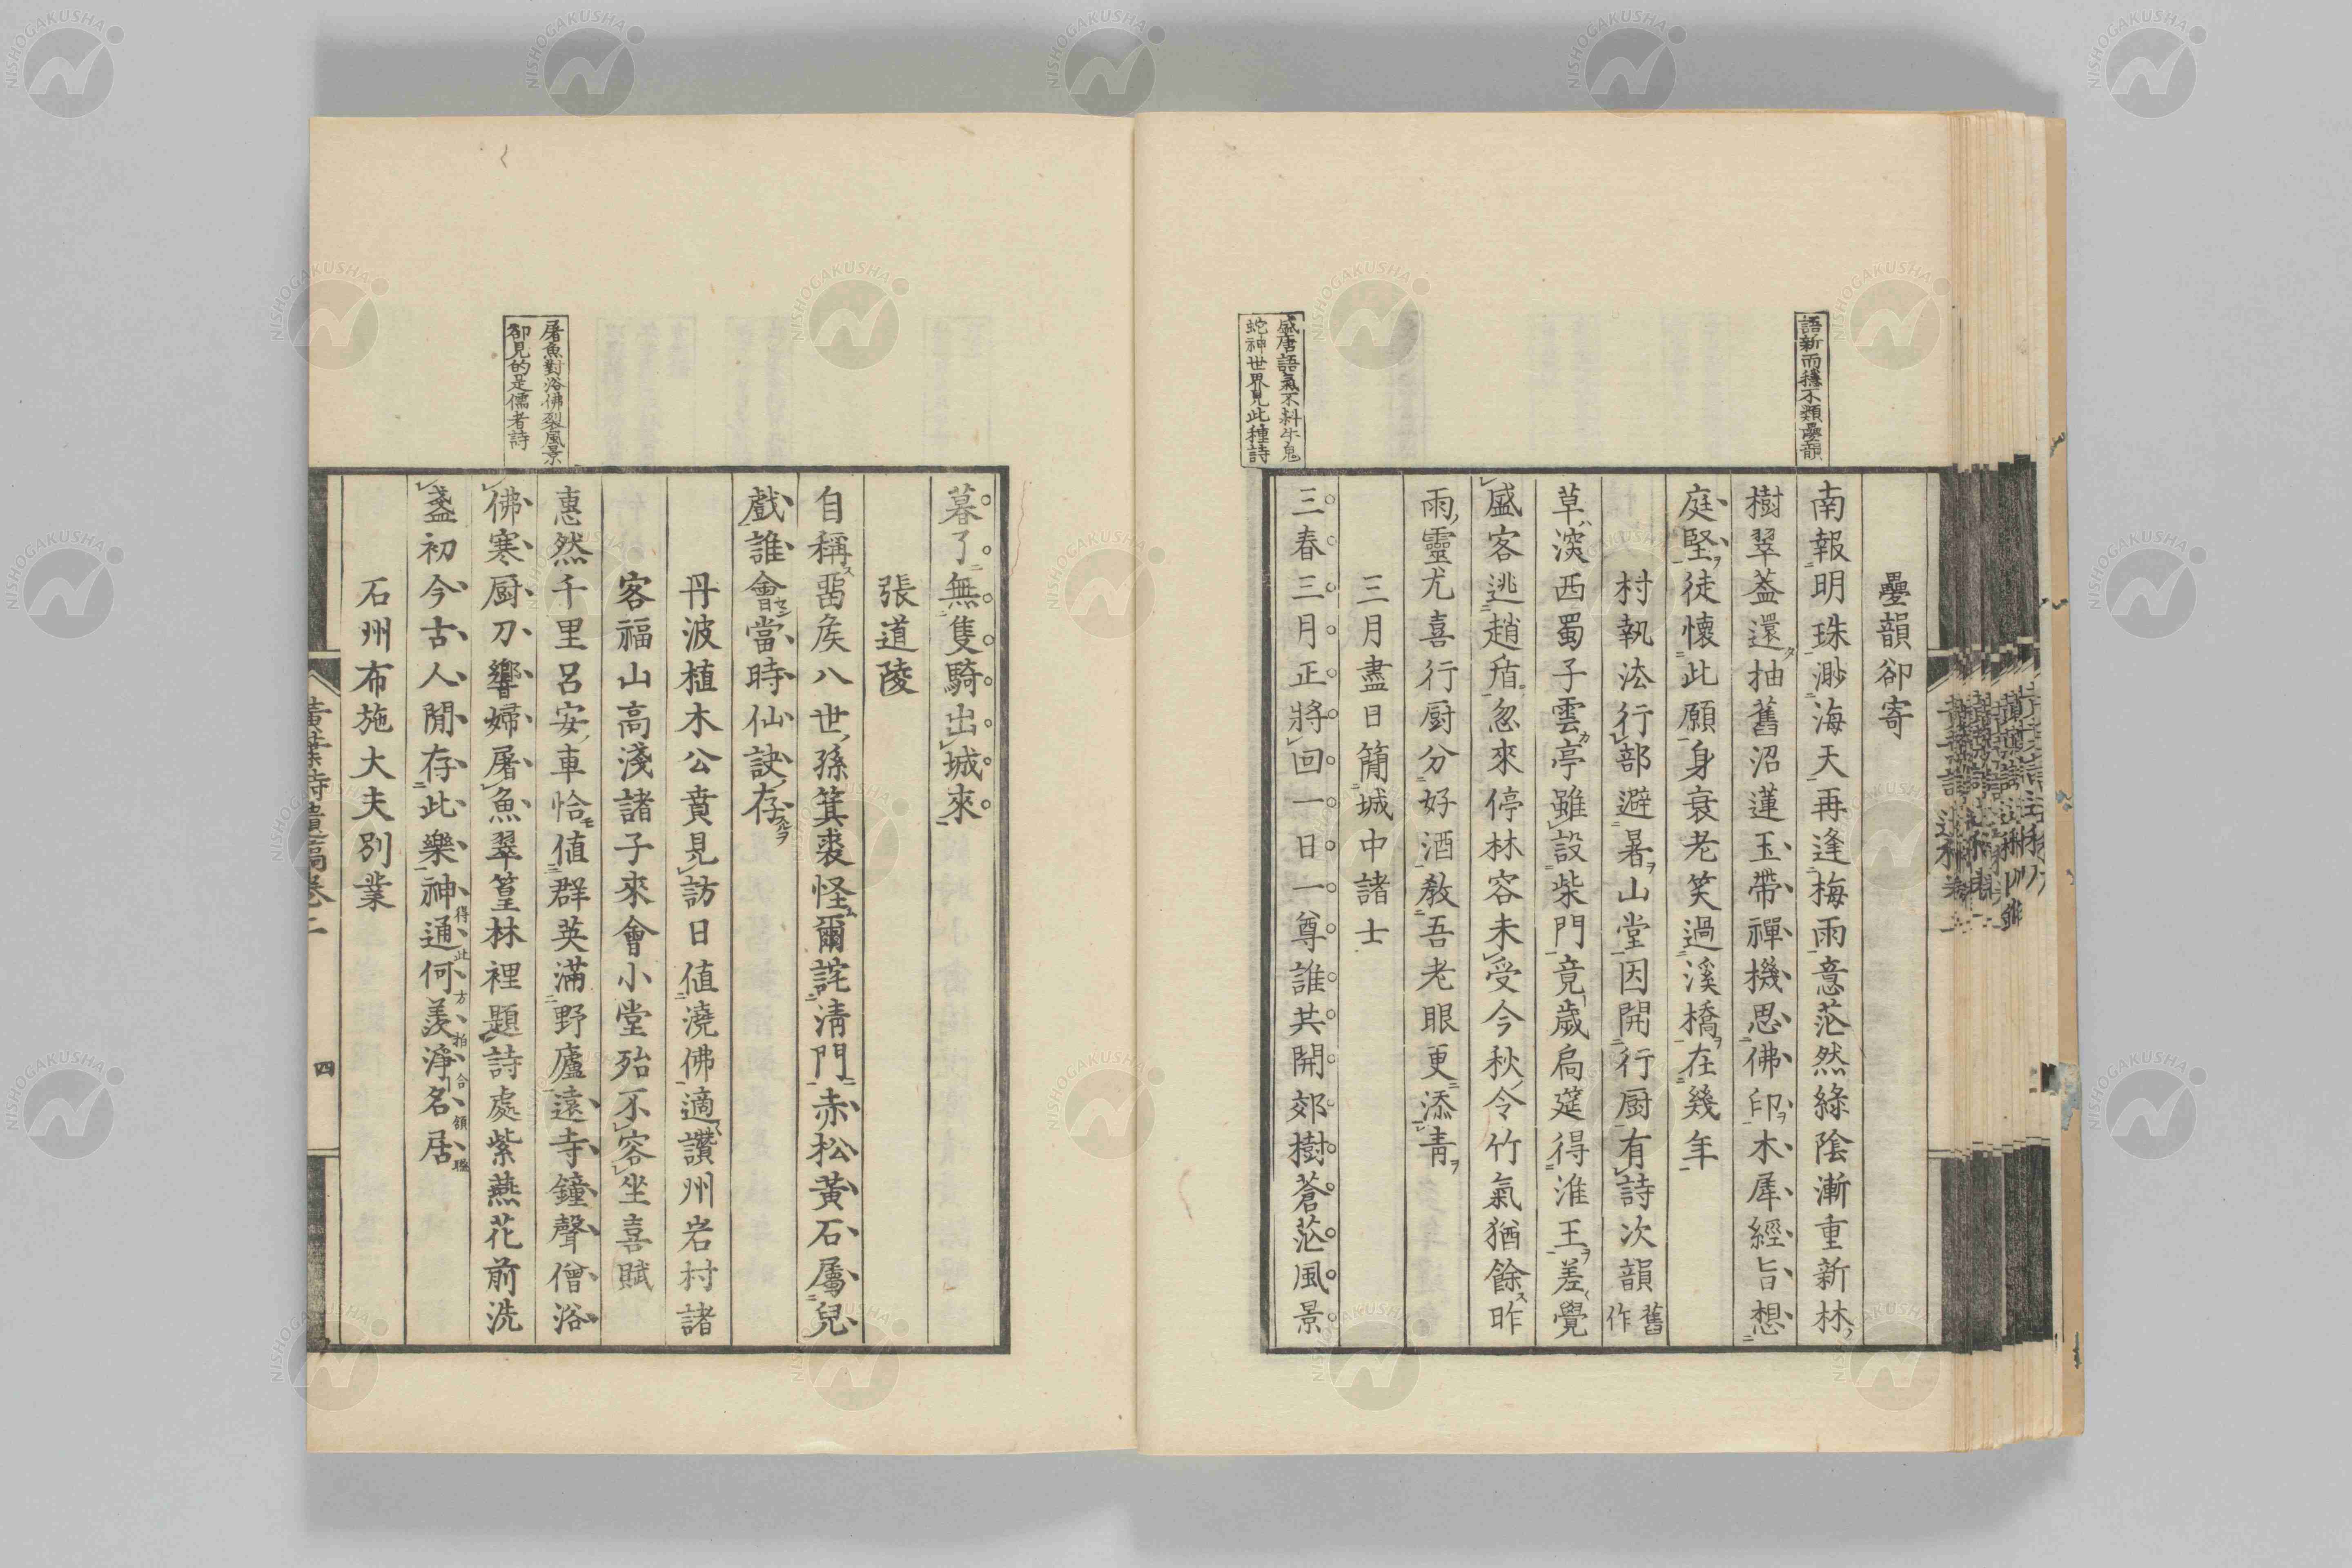 語新而穩不類疊韻
疊韻卻寄
南報明珠渺海天再逢梅雨意茫然綠陰漸重新林
樹翠蓋還抽舊沼蓮玉帶禪機思佛印木犀經旨想
庭堅徒懷此願身衰老笑過溪橋在幾年
村執法行部避暑山堂因開行厨有詩次韻舊作
草滨西蜀子雲亭雖設柴門竟歲扃筵得淮王差覺
盛客逃趙盾忽來停林容未受今秋令竹氣猶餘昨
雨靈尤喜行厨分好酒教吾老眼更添青
三月盡日簡城中諸士
盛唐語氣不料牛鬼
蛇神世界見此種詩
三春三月正將回一日一尊誰共開郊樹蒼茫風景
暮了無隻騎出城來
張道陵
自稱畱矦八世孫箕裘怪爾詫清門赤松黃石屬兒
戲誰會當時仙訣存
丹波植木公賁見訪日值澆佛適讚州岩村諸
客福山高淺諸子來會小堂殆不容坐喜賦
惠然千里呂安車恰值群英滿野廬遠寺鐘聲僧浴
屠魚對浴佛裂風景
卻見的是儒者詩
佛寒厨刀響婦屠魚翠篁林裡題詩處紫燕花前洗
盞初今古人閒存此樂神通何羨淨名居
得此方拍合領聯
石州布施大夫別業
黃葉詩遺稿卷二
四
NISHOGAKUSHA